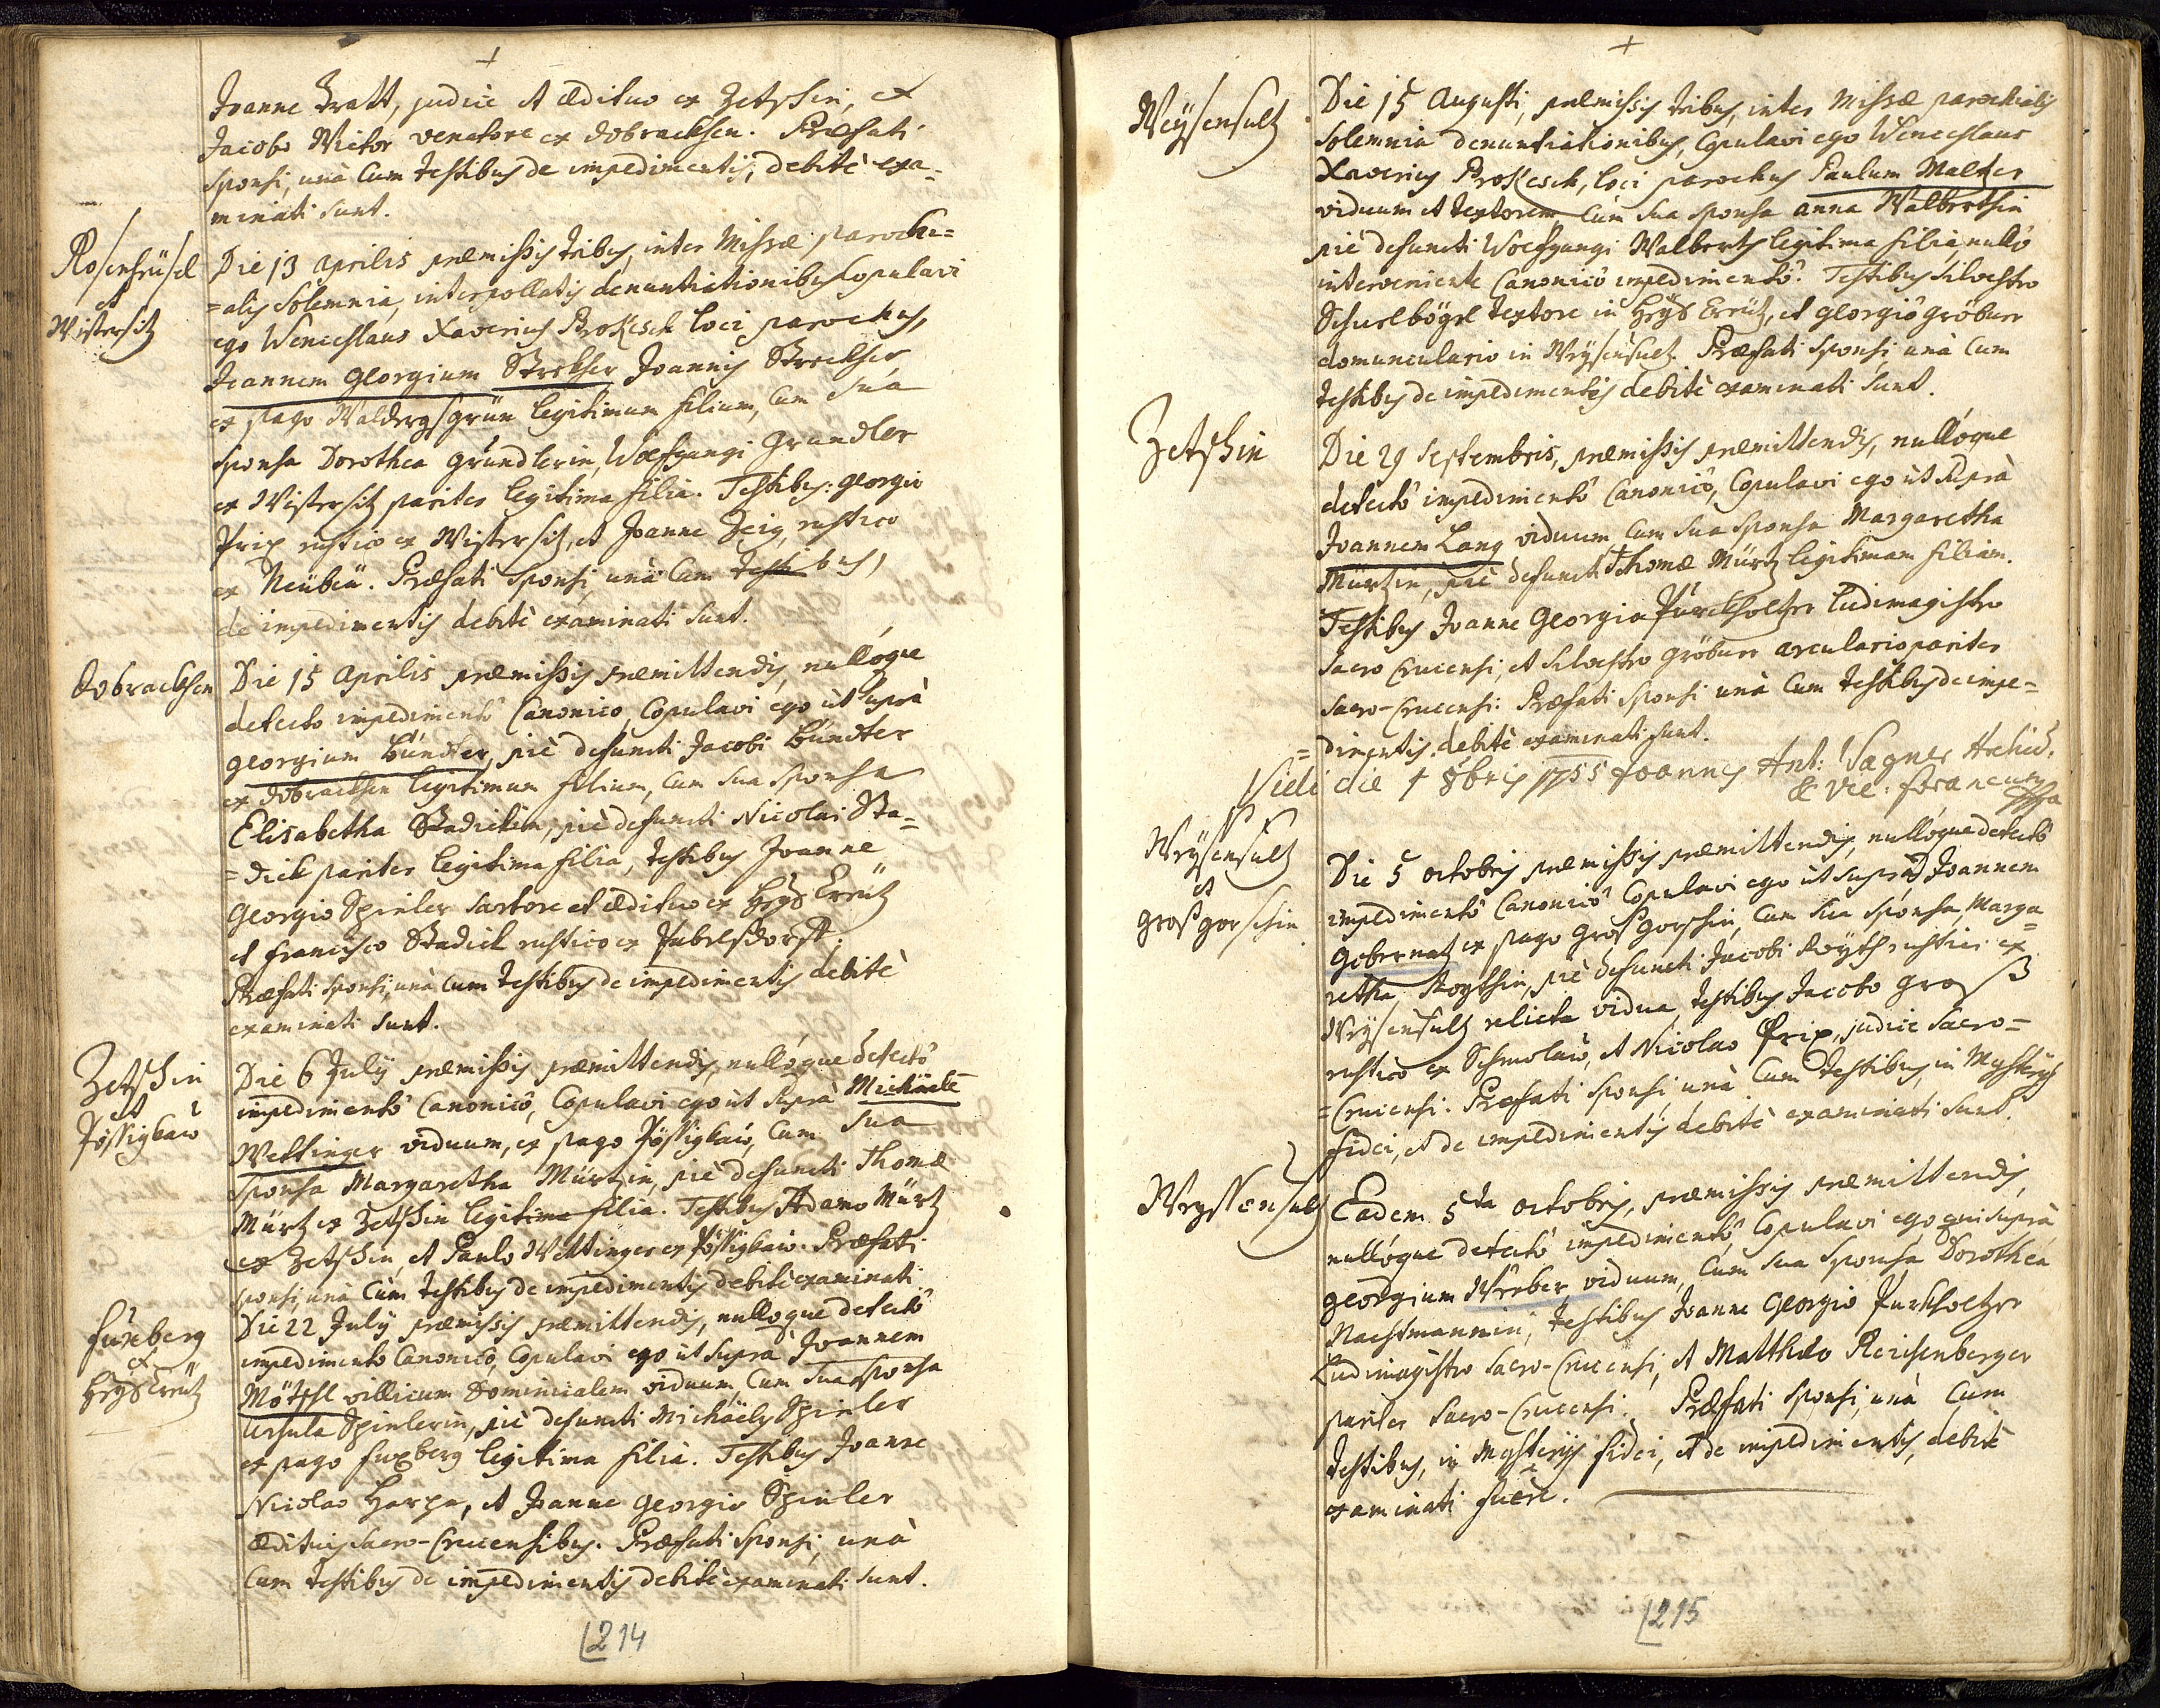 Joanne Tratt, judice et ædituo ex Zetschin, et
Jacobo Wictor venatore ex Dobracksen. Præfati
sponsi, unà cum testibus de impedimentis, debitè exa=
minati sunt.
et
Wistersitz
Die 13 Aprilis præmissis tribus, inter Missæ parochi=
=alis solemnia, interpollatis denuntiationibus copulavi
ego Wenceslaus Xaverius Prokesch loci parochus,
Joannem Georgium Strekher Joannis Strekher
ex pago Waldersgrün legitimum filium, cum sua
sponsa Dorothea Gründlerin, Wolfgangi Grundler
ex Wistersitz pariter legitima filia. Testibus: Georgio
Prix rustico ex Wistersitz, et Joanne Zeig, rustico
ex Neübeü. Præfati sponsi, unà cum testibus,
de impedimentis debitè examinati sunt.
Dobracksen
Die 15 Aprilis præmissis præmittendis, nullóque
detecto impedimentô Canonico, Copulavi ego ut suprà
Georgium Bündter, piè defuncti Jacobi Bündter
ex Dobracksen legitimum filium, cum sua sponsa
Elisabetha Stadickin, piè defuncti Nicolai Sta=
=dick pariter legitima filia, testibus Joanne
Georgio Spinler sartore et ædituo ex Heyl Creütz
et Francisco Stadick rustico ex
Præfati sponsi, unà cum testibus de impedimentis debitè
examinati sunt.
Zetschin
et
Pössigkaw
Die 6 July præmissis præmittendis, nullóque detectô
impedimentô Canonicô, Copulavi ego ut suprà Michäele
Wettinger viduum, ex pago Pössigkaw, cum sua
Sponsa Margaretha Mürtzin, piè defuncti Thomæ
Mürtz ex Zetschin legitima filia. Testibus Adamo Mürtz
ex Zetschin, et Paulo Wettinger ex Pössigkaw. Præfati
sponsi, unà cum testibus de impedimentis debitè examinati
Fuxberg
et
Heyl Creütz
Die 22 July præmissis præmittendis, nulloque detectô
impedimento Canonico, Copulavi ego ut suprà Joannem
Möttsl villicum Dominicalem viduum, cum sua sponsa
Ursula Spinlerin, piè defuncti Michäelis Spinler
ex pago Fuxberg legitima filia. Testibus Joanne
Nicolao Harpa, et Joanne Georgio Spinler
ædituis Sacro-Crucensibus. Præfati sponsi, unà
cum testibus de impedimentis debitè examinati sunt.
214
Weysensultz
Die 15 Augusti, præmissis tribus, inter Missæ parochialis
solemnia denuntiationibus, copulavi ego Wenceslaus
Xaverius Prokesch, loci parochus Paulum Malter
viduum et textorem, cum sua sponsa Anna Walberthin
piè defuncti Wolfgangi Walberth legitima filia, nullô
interveniente Canonicô impedimentô. Testibus Silvestro
Schuelbögl textore in Heyl Creütz, et Georgiô Gröbner
domunculario in Weysensultz. Præfati sponsi unà cum
testibus de impedimentis debitè examinati sunt.
Zetschin
Die 29 Septembris, præmissis præmittendis, nullóque
detectô impedimentô Canonicô, Copulavi ego ut suprà
Joannem Lang viduum, cum sua sponsa Margaretha
Mürtzin, piè defuncti Thomæ Mürtz legitimam filiam.
Testibus Joanne Georgio Purckholtzer Ludimagistro
Sacro Crucensi, et Silvestro Gröbner arculario pariter
Sacro-Crucensi: Præfati sponsi unà cum testibus de impe=
=dimentis debitè examinati sunt.
Vidi die 1 8bris 1755 Joannes Ant: Wagner Archid.
& Vic: Foraneus
Weysensultz
et
Grosgorschin
Die 5 octobris præmissis præmittendis, nullóque detectô
impedimentô Canonicô Copulavi ego ut suprà Joannem
Gobernatz ex pago Grosgorschin, cum sua sponsa, Marga=
retha, Roythin, piè defuncti Jacobi Röyth rustici ex
Weysensultz relicta vidua, testibus Jacobo Groß
rustico ex Schmolaw, et Nicolao Prix, judice Sacro=
=Crucensi. Præfati sponsi, unà cum testibus, in Mysterys
fidei, et de impedimentis debitè examinati sunt.
Weyssensultz
Eadem 5ta octobris, præmissis præmittendis,
nullóque detectô impedimentô, Copulavi ego, qui suprà
Georgium Weeber viduum, cum sua sponsa Dorothea
Nachtmannin, testibus Joanne Georgio Purkholtzer
Ludimagistro Sacro-Crucensi, et Matthæo Reichenberger
pariter Sacro-Crucensi. Præfati sponsi, unà cum
testibus, in Mysterys fidei, et de impedimentis, debitè
examinati fuere.
215